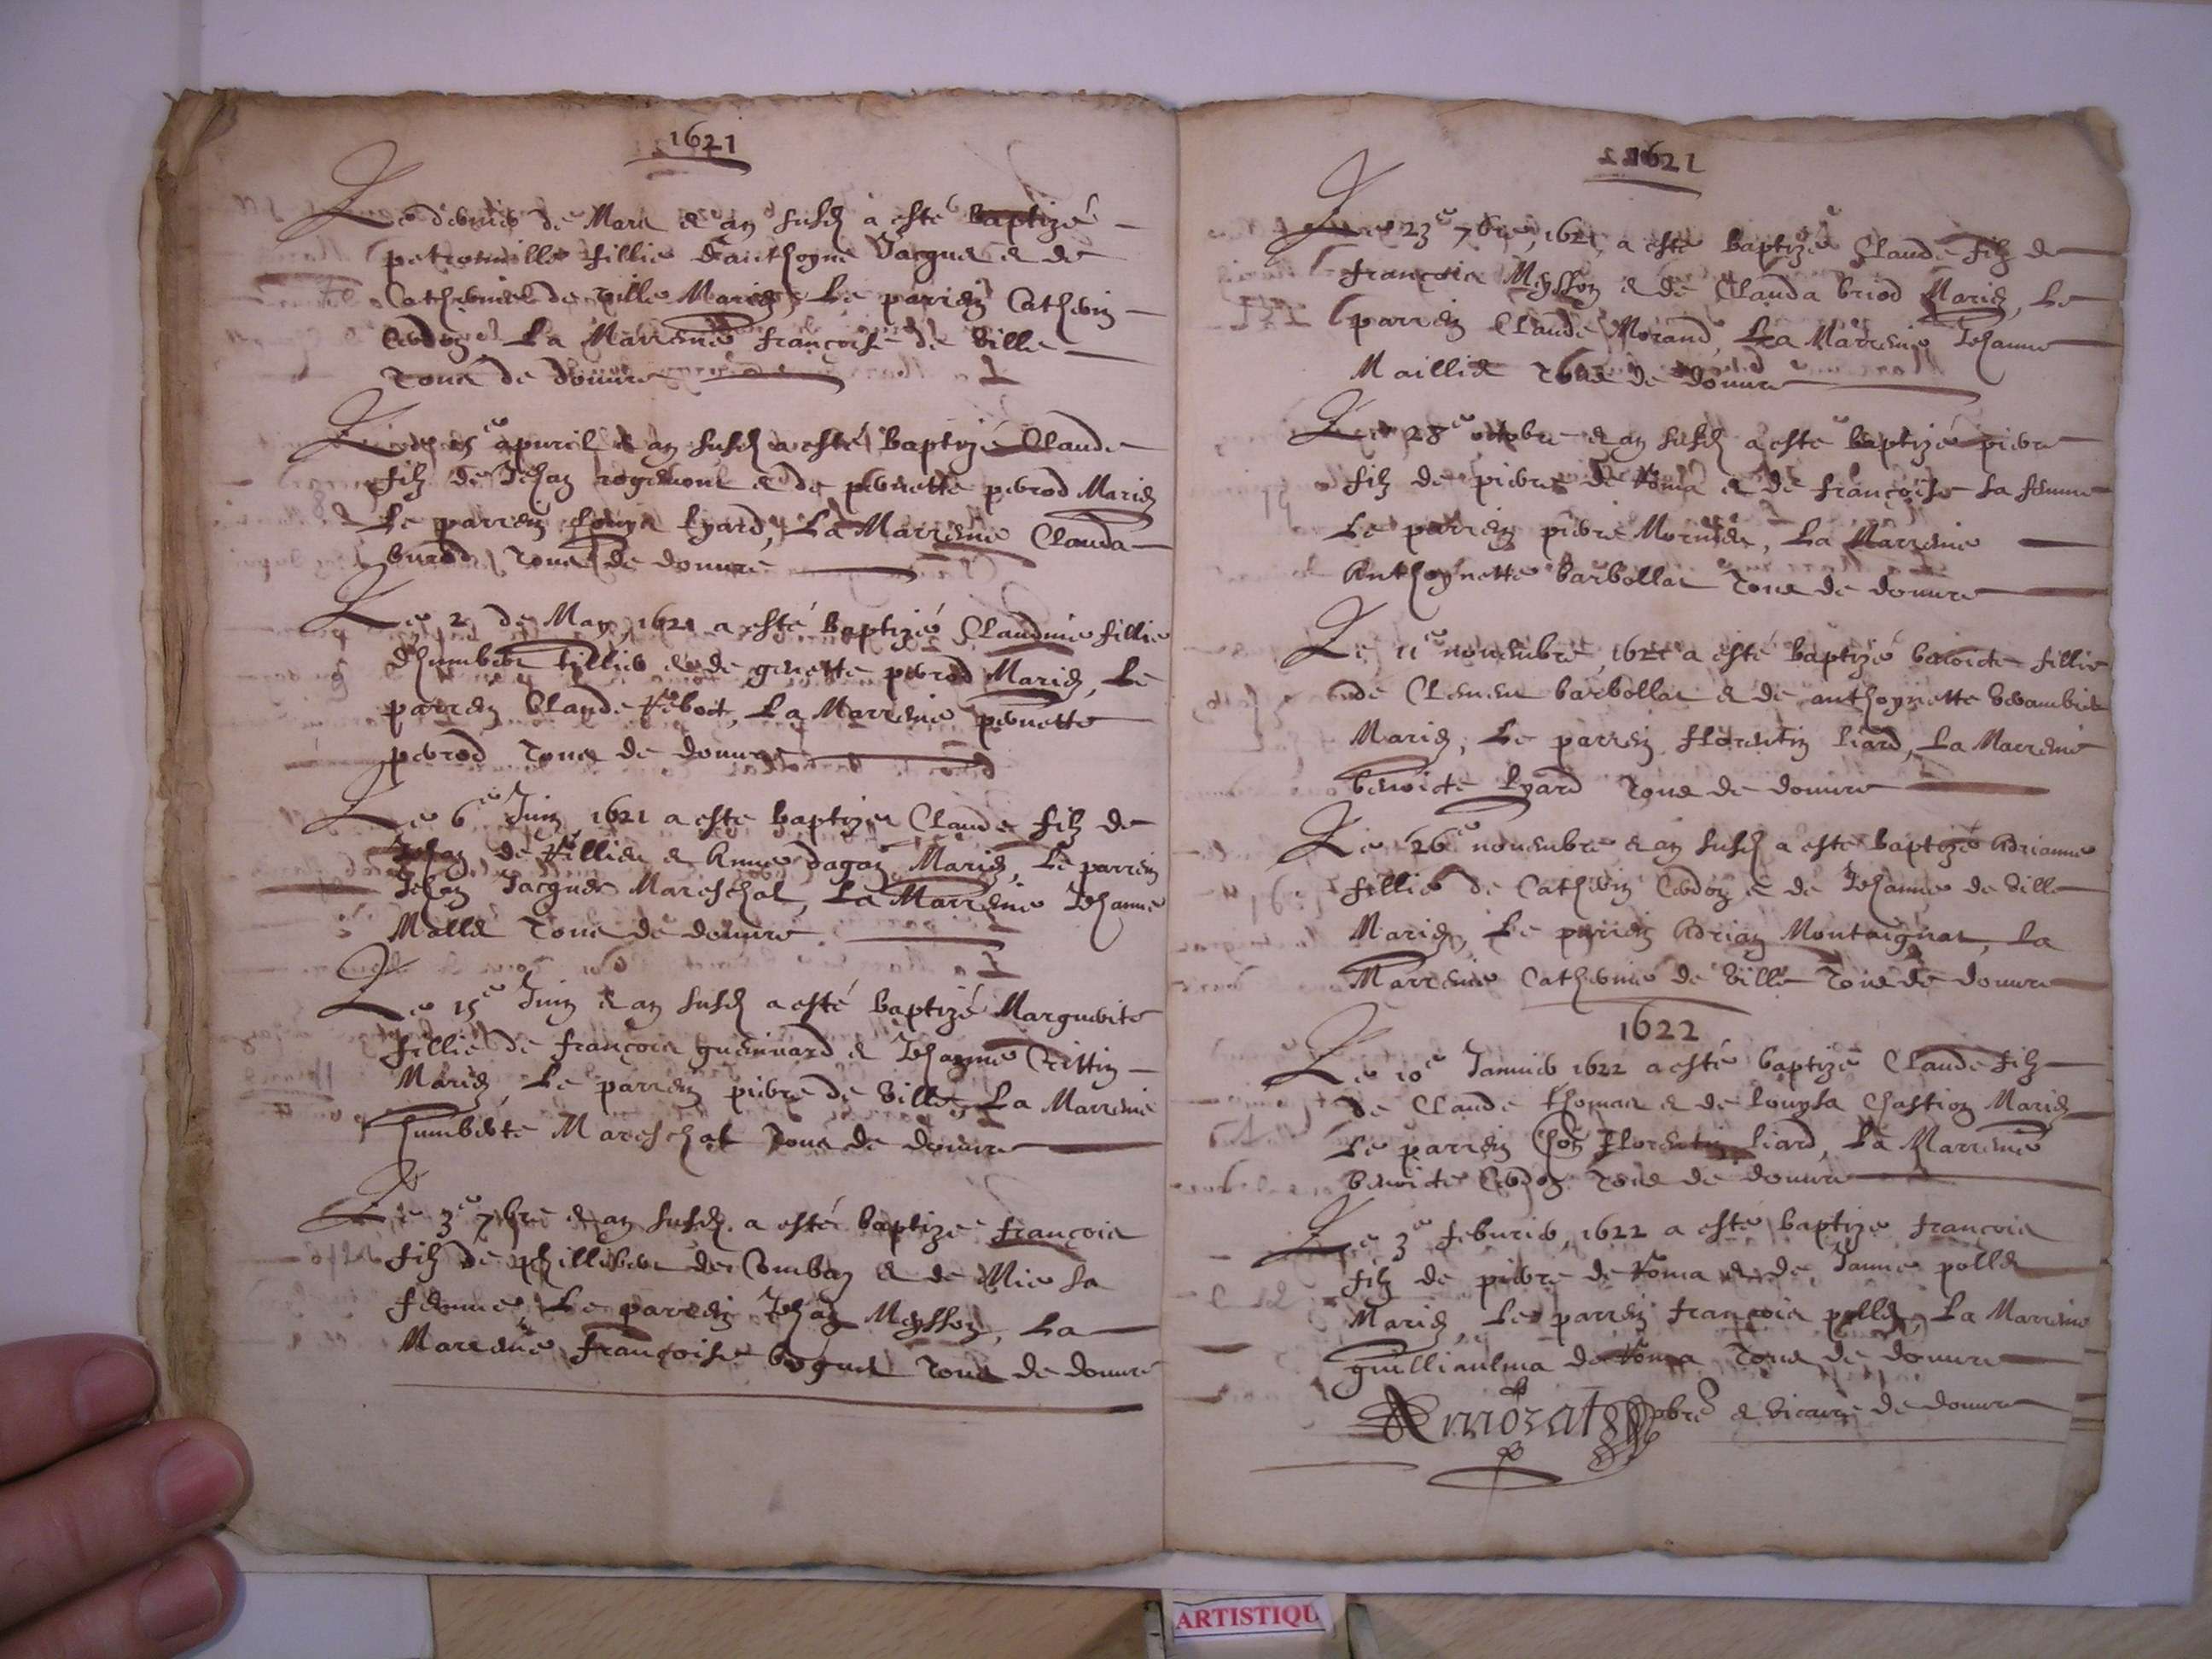 1621
Le dernier de Mars & an susd a esté baptizé
petronnille fillie d'anthoyne Jacques & de
Catherine de ville Mariez, Le parrein Catherin
Cerdon La Marreine françoise de ville
tous de douure
Le 15e apuril & an susd a esté baptizé Claude
filz de Jehan rogemont & de pernette perrod Mariez
Le parrein Louys Lyard, La Marreine Clauda
burod tous de douure
Le 2 de May 1621 a esté baptizé Claudine fillie
d'humbert tillier & de genette perrod Mariez, Le
parrein Claude, La Marreine pernette
perrod tous de douure
Le 6e Juin 1621 a este baptizer Claude filz de
Jehan de & Anne dagan Mariez, Le parrein
Jehan Jacques Mareschal, La Marreine Jehanne
Malle tous de douure
Le 15e Juin & an susd a esté baptizé Marguerite
fillie de françois guennard & Jehanne Crittin
Mariez, Le parrein pierre de ville, La Marreine
humberte Mareschal tous de douure
Le 3e 7bre & an susd. a esté baptize françois
filz de phillibert de Combaz & de Mie sa
femme, Le parrein Jehan Meysson, La
Marreine françoise tous de douure
1621
Le 23e 7bre, 1621, a esté baptizé Claude filz de
françois Meysson & de Clauda briod Mariez, Le
parrein Claude Morand, La Marreine Jehanne
Maillie tous de douure
Le 28e octobre & an susd a este baptizé pierre
filz de pierre de Roma & de françoise sa femme
Le parrein pierre, La Marreine
Anthoynette barbollat tous de douure
Le 11e nouembre, 1621 a esté baptizé benoicte fillie
de Clement barbollat & de anthoynette
Mariez, Le parrein florentin liard, La Marreine
benoicte Lyard tous de douure
Le 26e nouembre & an susd a este baptizé Adrianne
fillie de Catherin Cerdon & de Jehanne de ville
Mariez, Le parrein Adrian Montaignat, La
Marreine Catherine de ville tous de douure
1622
Le 10e Januier 1622 a esté baptizé Claude filz
de Claude thomas & de Louysa Chastion Mariez
Le parrein florentin liard, La Marreine
benoicte Cerdon tous de douure
Le 3e feburier, 1622 a esté baptize françois
filz de pierre de Roma & de Janne pollet
Mariez, Le parrein françois pollet, La Marreine
guillianlma de Roma tous de douure
pbre & vicaire de douure
ARTISTIQU